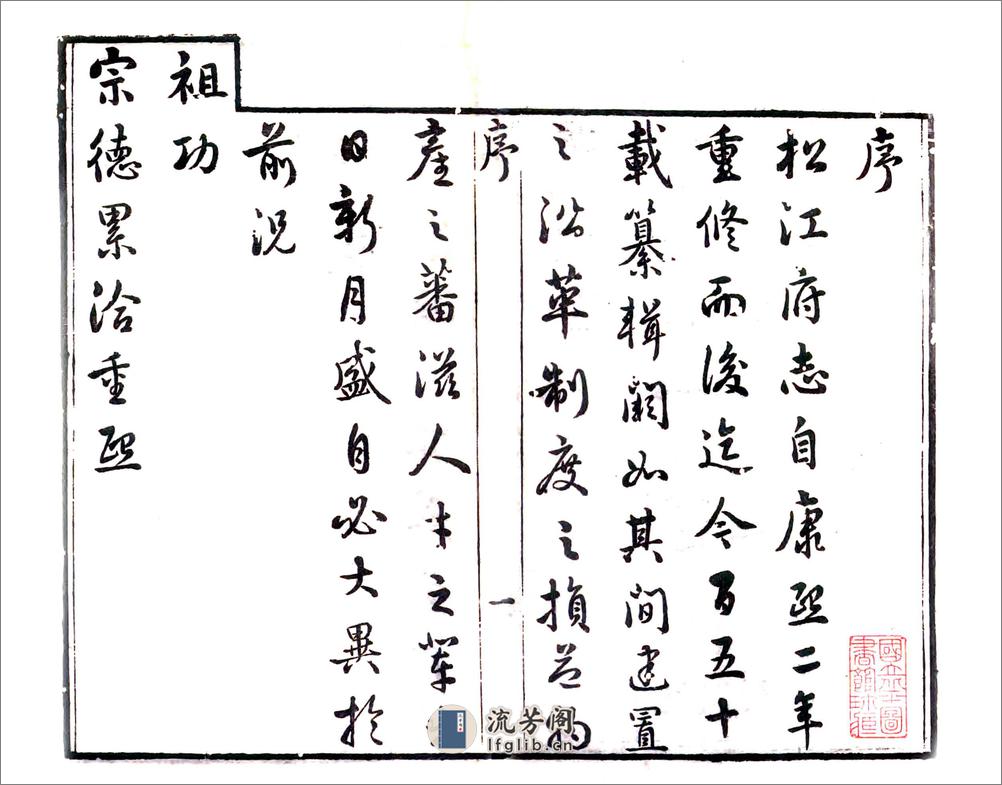 序
松江府志自康熙二年
重修而後迄今百五十
載纂輯闕如其間建置
之沿革制度之損益物
序
一
產之蕃滋人才之輩
日新月盛自必大異於
前況
祖功
宗德累洽重熙
國立北平圖
書館珍藏
流芳阁
lfglib.cn